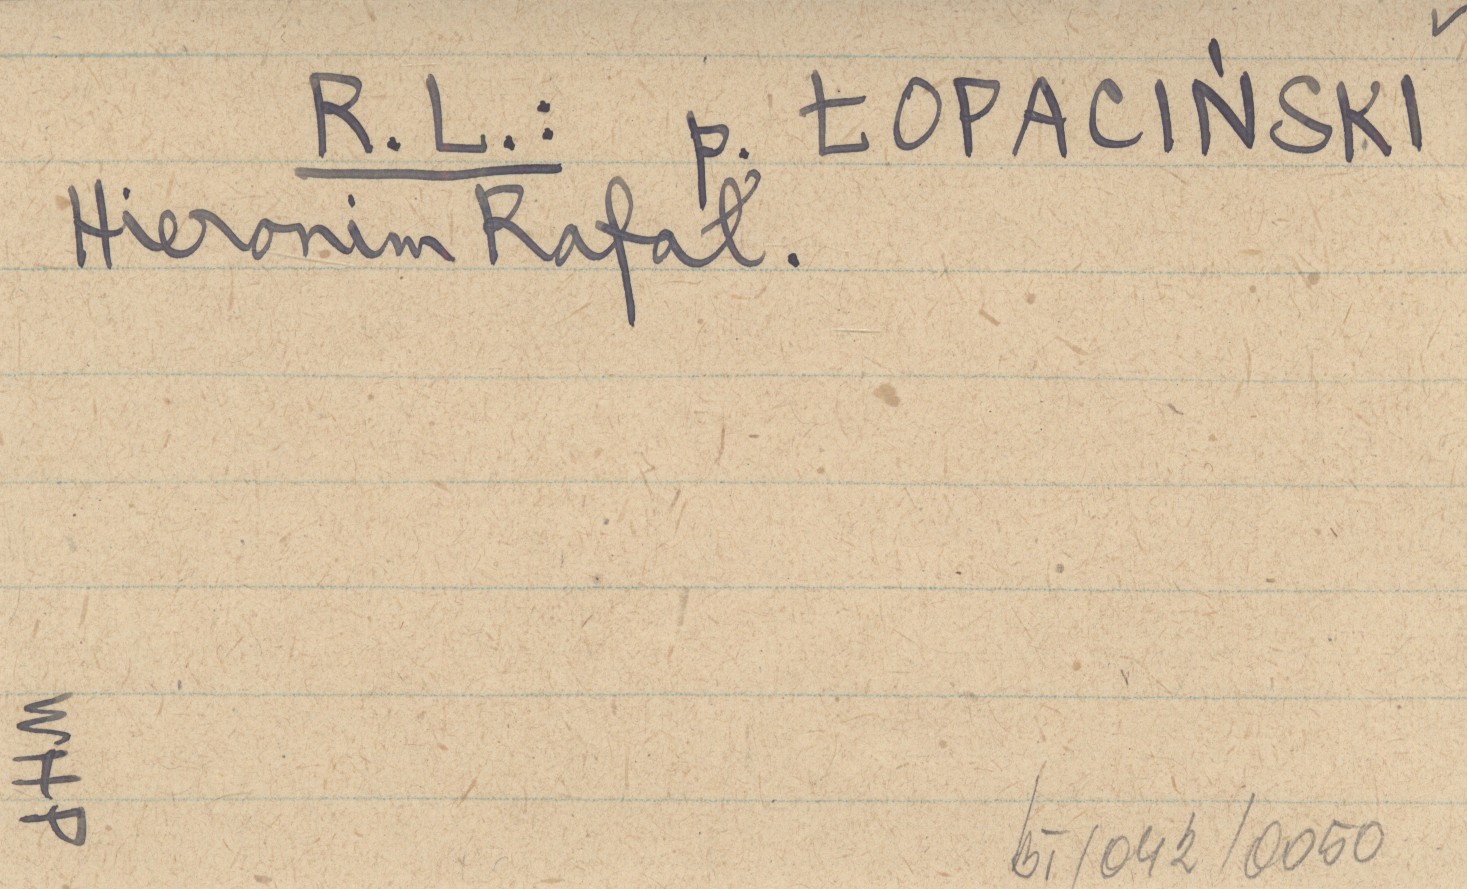 R.L.: p. ŁOPACIŃSKI
Hieronim Rafał.
WHP
bI/042/0050